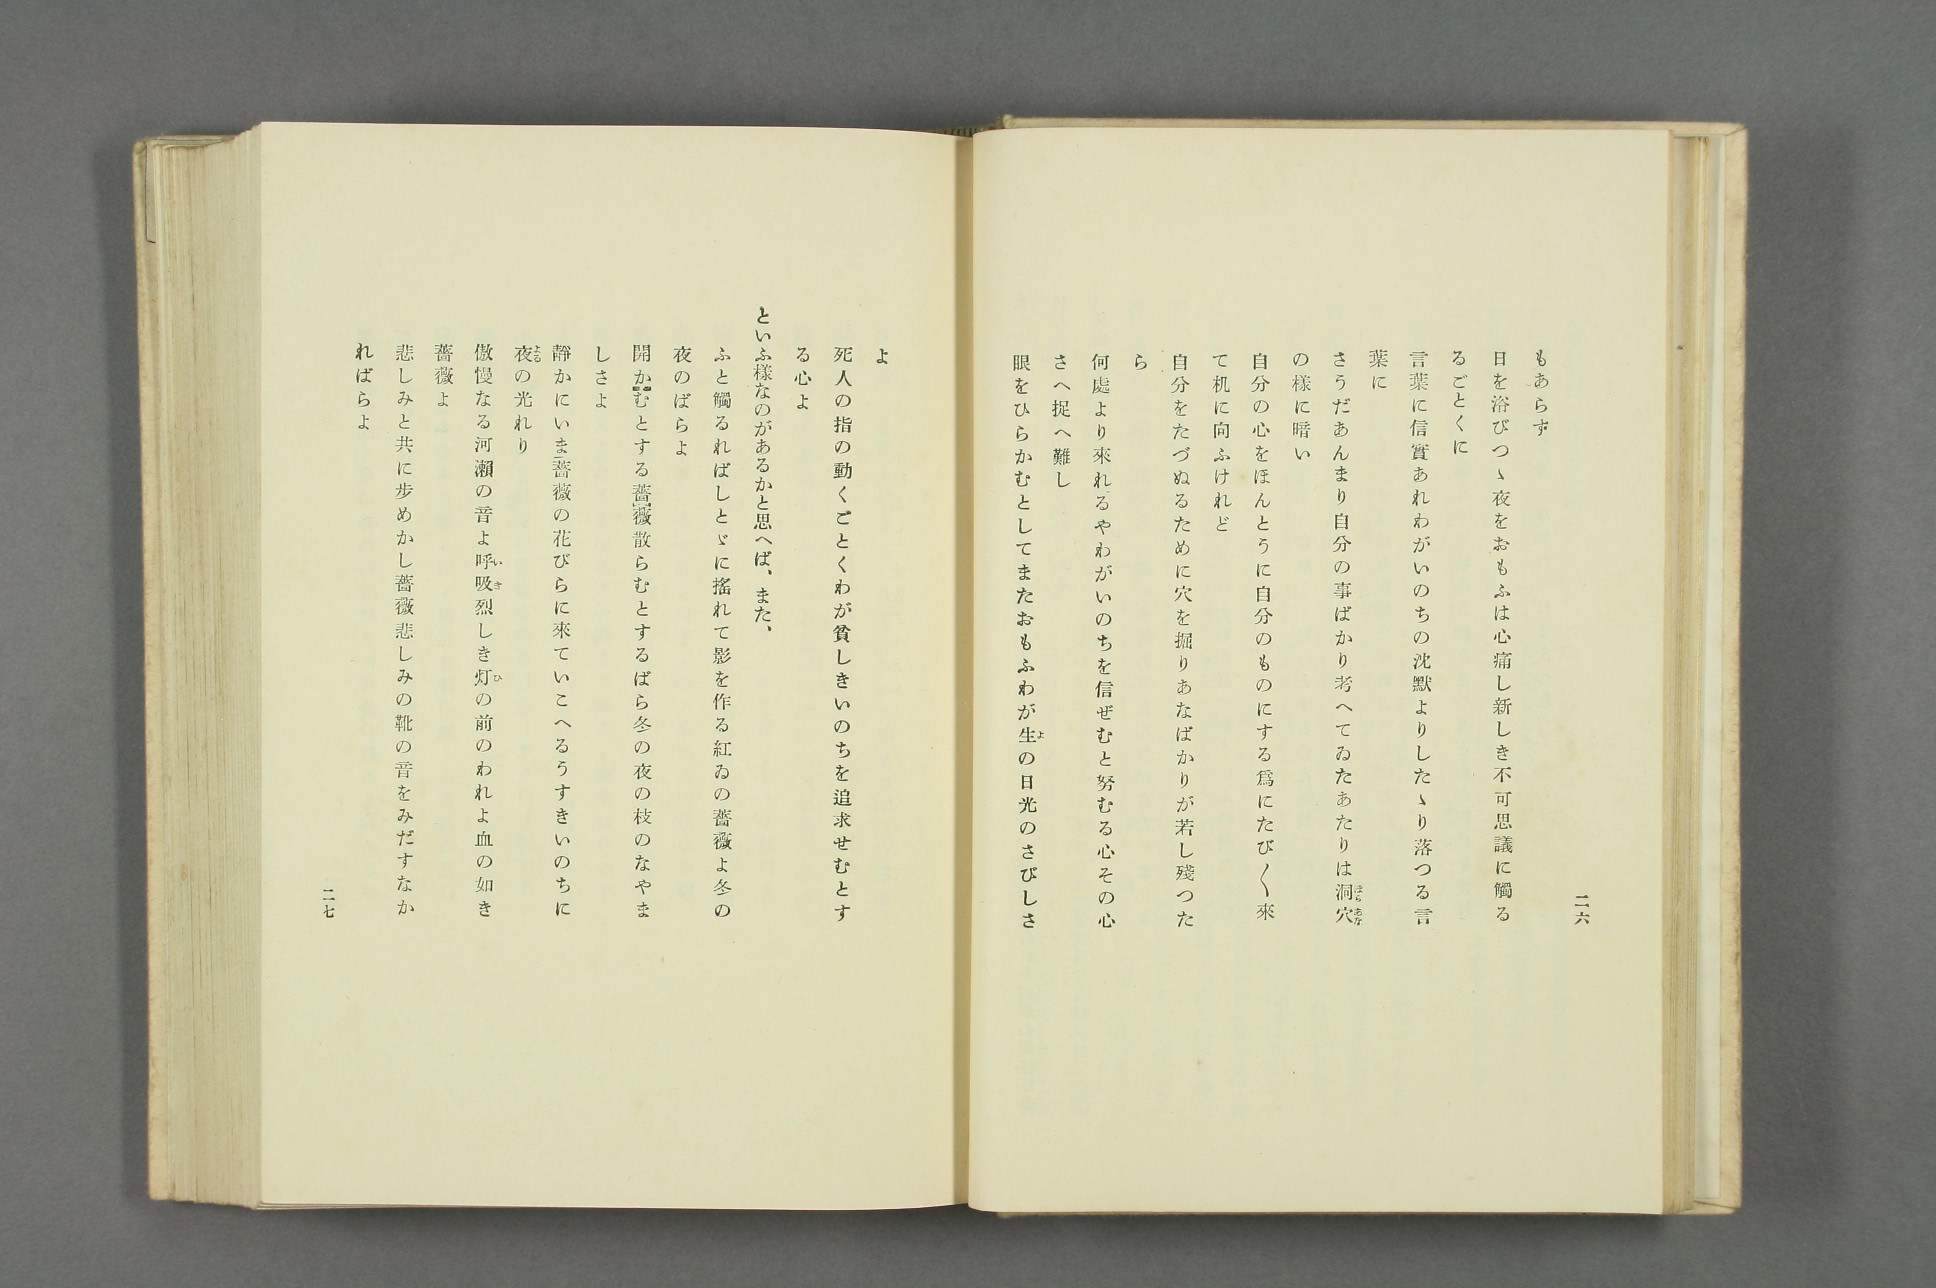 二六
もあらず
日を浴びつゝ夜をおもふは心痛し新しき不可思議に觸る
るごとくに
言葉に信實あれわがいのちの沈默よりしたゝり落つる言
葉に
さうだあんまり自分の事ばかり考へてゐたあたりは洞穴
の樣に暗い
自分の心をほんとうに自分のものにする爲にたび〳〵來
て机に向ふけれど
自分をたづぬるために穴を掘りあなばかりが若し殘つた
ら
何處より來れるやわがいのちを信ぜむと努むる心その心
さへ捉へ難し
眼をひらかむとしてまたおもふわが生の日光のさびしさ
よ
死人の指の動くごとくわが貧しきいのちを追求せむとす
る心よ
といふ樣なのがあるかと思へば、また、
ふと觸るればしとゞに搖れて影を作る紅ゐの薔薇よ冬の
夜のばらよ
開かむとする薔薇散らむとするばら冬の夜の枝のなやま
しさよ
靜かにいま薔薇の花びらに來ていこへるうすきいのちに
夜の光れり
傲慢なる河瀬の音よ呼吸烈しき灯の前のわれよ血の如き
薔薇よ
悲しみと共に步めかし薔薇悲しみの靴の音をみだすなか
ればらよ
二七